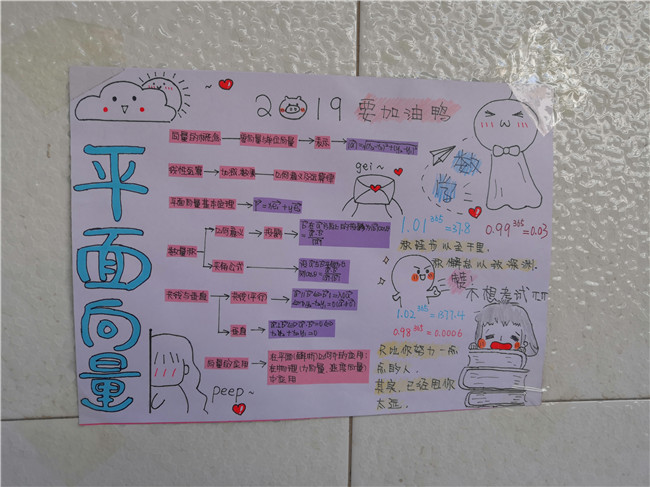 2019 要加油鸭
平面向量
向量的概念 零向量与单位向量 表示
线性运算 加减,数乘 几何意义及运算律
平面向量基本定理
gei~
数学
数量积 几何意义 投影
夹角公式
共线与垂直 共线(平行)
垂直
向量的应用 在平面(解析)几何中的应用;
在物理(力向量、速度向量)
中应用
peep~
1.01³⁶⁵=37.8 0.99³⁶⁵=0.03
积跬步以至千里,
积懈怠以致深渊.
哼!
不想考试 TT
1.02³⁶⁵=1377.4
0.98³⁶⁵=0.0006
只比你努力一点
点的人,
其实,已经甩你
太远.